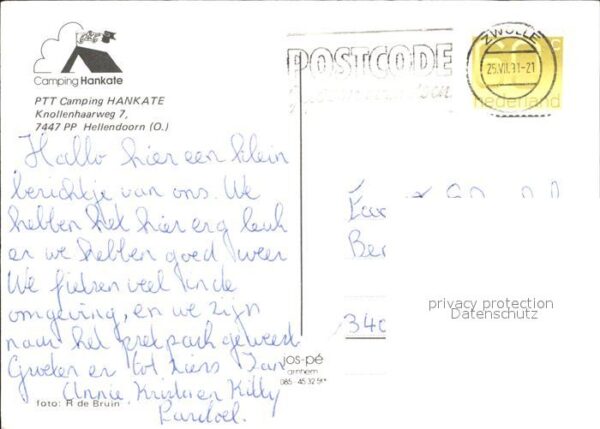 PTT
Camping Hankate
PTT Camping HANKATE
Knollenhaarweg 7,
7447 PP Hellendoorn (O.)
POSTCODE
ZWOLLE
25.VII.91-21
60 c
nederland
Hallo hier een klein
berichtje van ons. We
hebben het hier erg leuk
en we hebben goed weer
We fietsen veel in de
omgeving, en we zijn
naar het pretpark geweest
Groeten en tot ziens Jan
Annie, Krista en Kitty
privacy protection
Datenschutz
340
jos-pé
arnhem
085-45 32 5
foto: R de Bruin